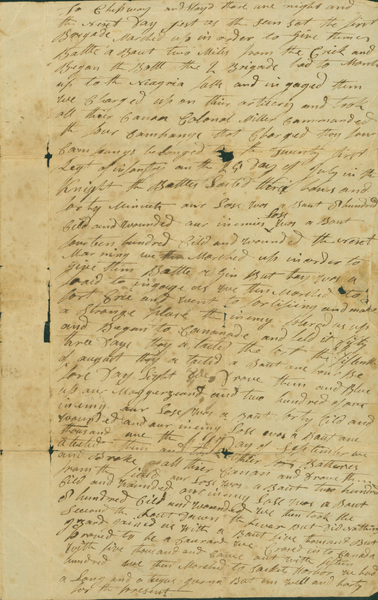 to Chipaway and Stayd thare one night and
the Next Day just as the Sun Sat the first
Brigade Marched up in order to Give them
Battle a Bout two Miles from the Crick and
Began the Battle the 2 Brigade had to March
up to the Niagria falls and ingaged them
we Charged up on thir artilery and took
all their Canon Colonal Miller Commanded
the four Companys that Charged thos four
Companys belonged to the twenty first
Regt of infantry on the 25 Day of July in the
Knight the Battle Lasted three hours and
forty Minuits our Loss was a Bout 8 hundred
Cild and wounded our inemis Loss was a Bout
fourteen hundred Cild and wounded the next
Morning we Marched up in order to
Give them Battle a Gin But thay was a
fraid to ingage us we then Marched to
fort Erie and went to fortifiing and make
a Strong place the inemy folered us up
and Began to Cannonade and held it fifty
three Days thay a tacted the fort the 15
of august thay a tacted a Bout one our Be
fore Day Light we Drove them and Blue
up our Maggerzene and two hundred of our
inemy our Loss was a Bout forty Cild and
wounded and our inemy Loss was a Bout one
thousand one the 17 Day of September we
a tacted them and took thir two Batterys
and broke all thir Canon and Drove them
from the our Loss was a Bout two hundred
Cild and wounded our inemy Loss was a Bout
8 hundred Cild and wounded we then took the
Second
guard raised us with a Bout five thousand But
proved to be a Coward we Crosed in to Canada
with five thousand and Came out with fifteen
hundred we then Marched to Sackets Harbor we had
a Long and a tegus Jorna But am well and harty
for the present